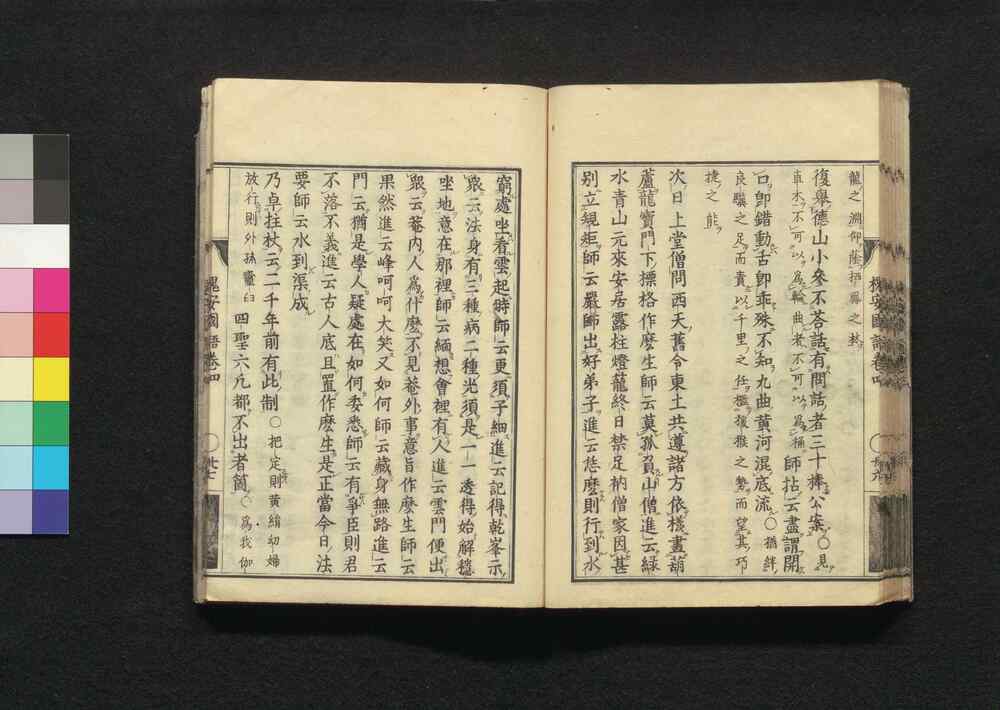 龍之淵仰蔭揩鼻之林
復擧德山小參不荅話有問話者三十棒公案○見
車木不可以爲輪曲者不可以爲桷師拈云盡謂開
口卽錯動舌卽乖殊不知九曲黃河混底流○猶絆
良驥之足而責以千里之任檻猨猴之勢而望其巧
捷之能
次日上堂僧問西天舊令東土共遵諸方依樣畫葫
蘆龍寶門下標格作麼生師云莫孤負山僧進云綠
水青山元來安居露柱燈籠終日禁足衲僧家因甚
別立規矩師云嚴師出好弟子進云恁麼則行到水
窮處坐看雲起時師云更須子細進云記得乾峯示
衆云法身有三種病二種光須是一一透得始解穩
坐地意在那裡師云緬想會裡有人進云雲門便出
衆云菴內人爲什麼不見菴外事意旨作麼生師云
果然進云峰呵呵大笑又如何師云藏身無路進云
門云猶是學人疑處在如何委悉師云有爭臣則君
不落不義進云古人底且置作麼生是正當今日法
要師云水到渠成
乃卓拄杖云二千年前有此制○把定則黃絹幼婦
放行則外孫齏臼四聖六凡都不出者箇○爲我伽
槐安國語卷四
槐安國語卷四